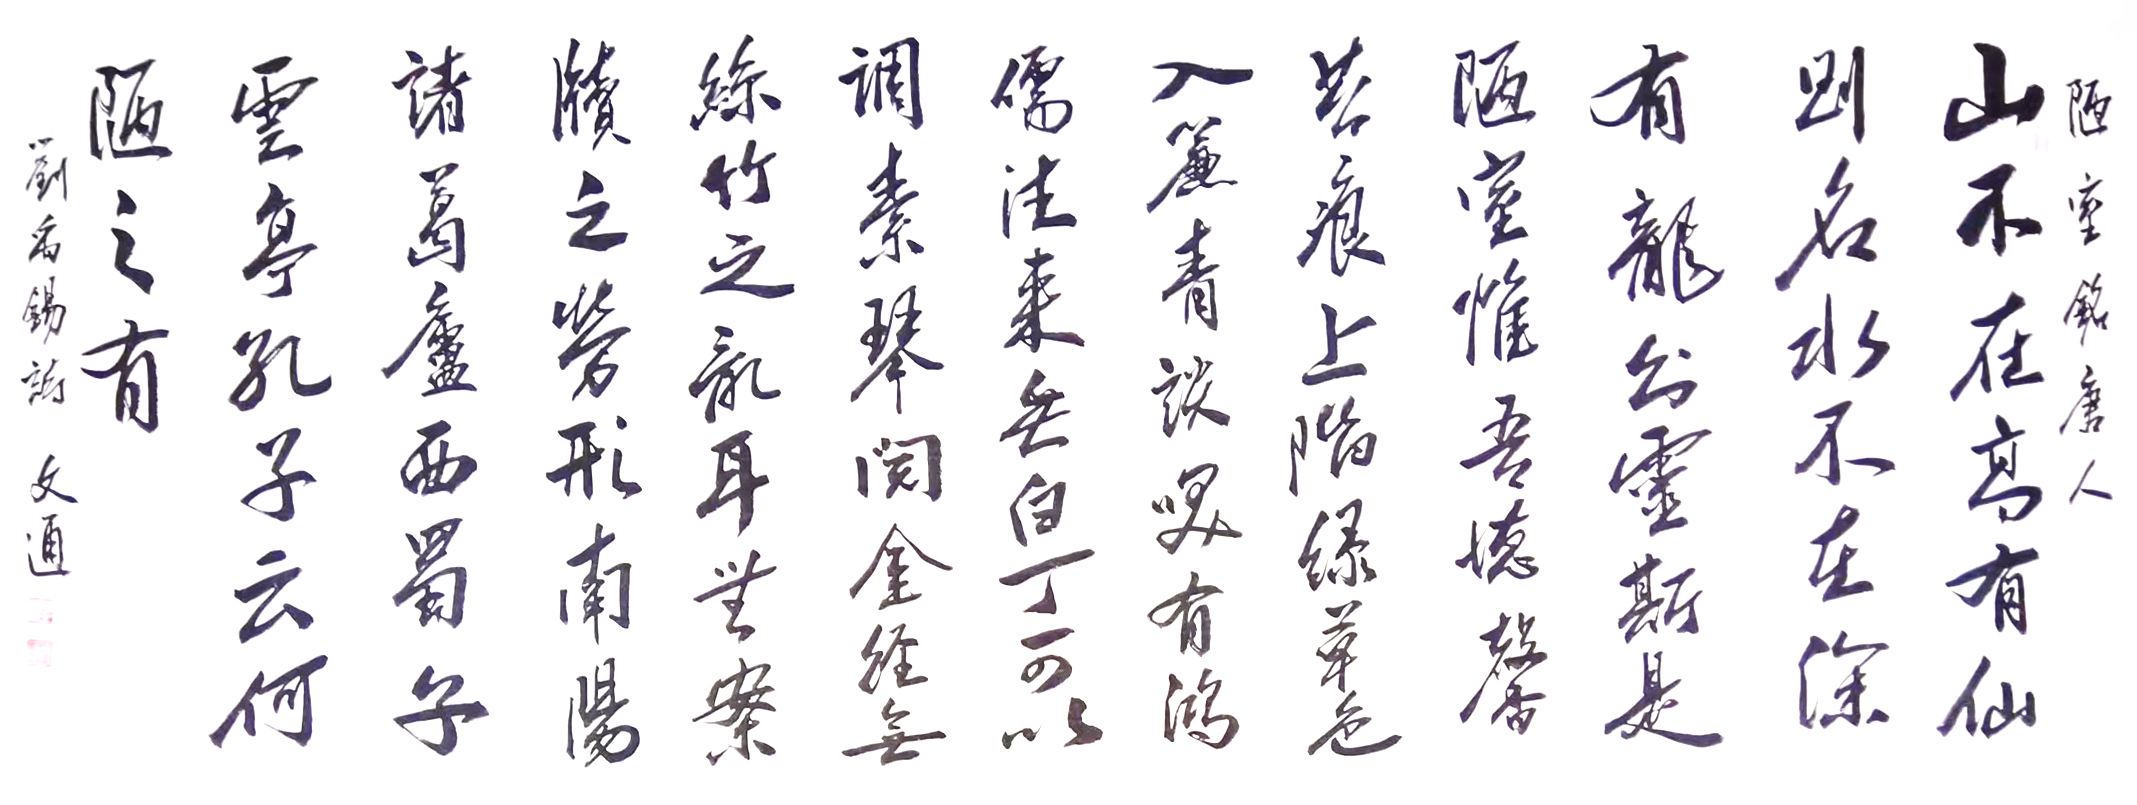 陋室銘唐人
山不在高有仙
則名水不在深
有龍則靈斯是
陋室惟吾德馨
苔痕上階綠草色
入簾青談笑有鴻
儒往來無白丁可以
調素琴閱金經無
絲竹之亂耳無案
牘之勞形南陽
諸葛廬西蜀子
雲亭孔子云何
陋之有
劉禹錫詩 文通